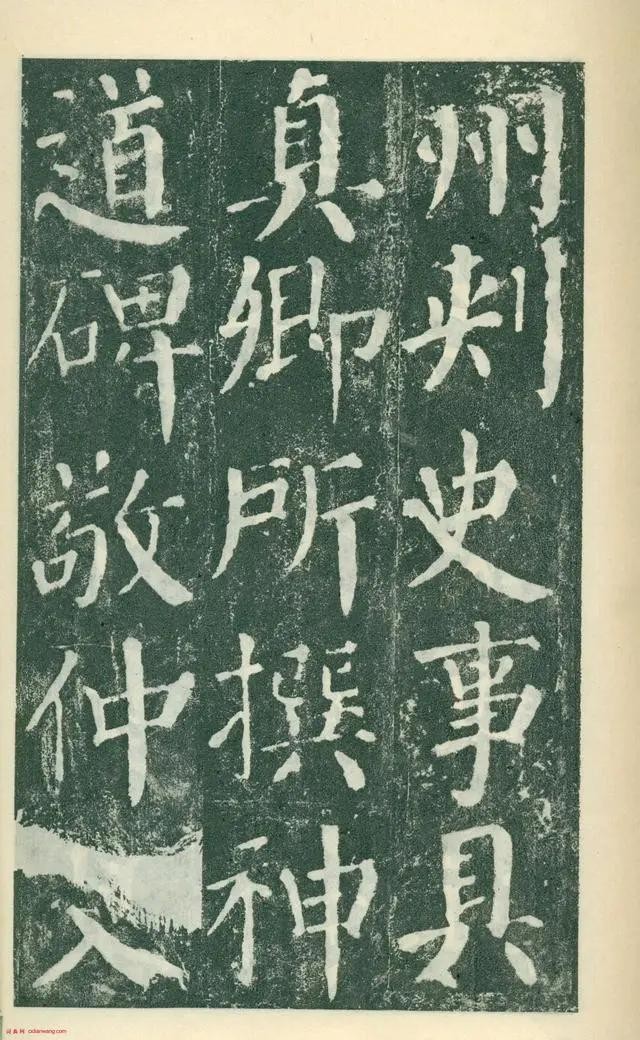 州刾史事具
真卿所撰神
道碑敬仲入
词典网 cidianwang.com